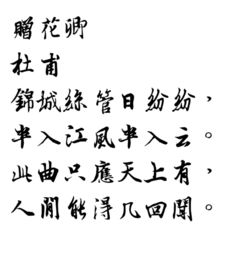 贈花卿
杜甫
錦城絲管日紛紛，
半入江風半入云。
此曲只應天上有，
人間能得几回聞。